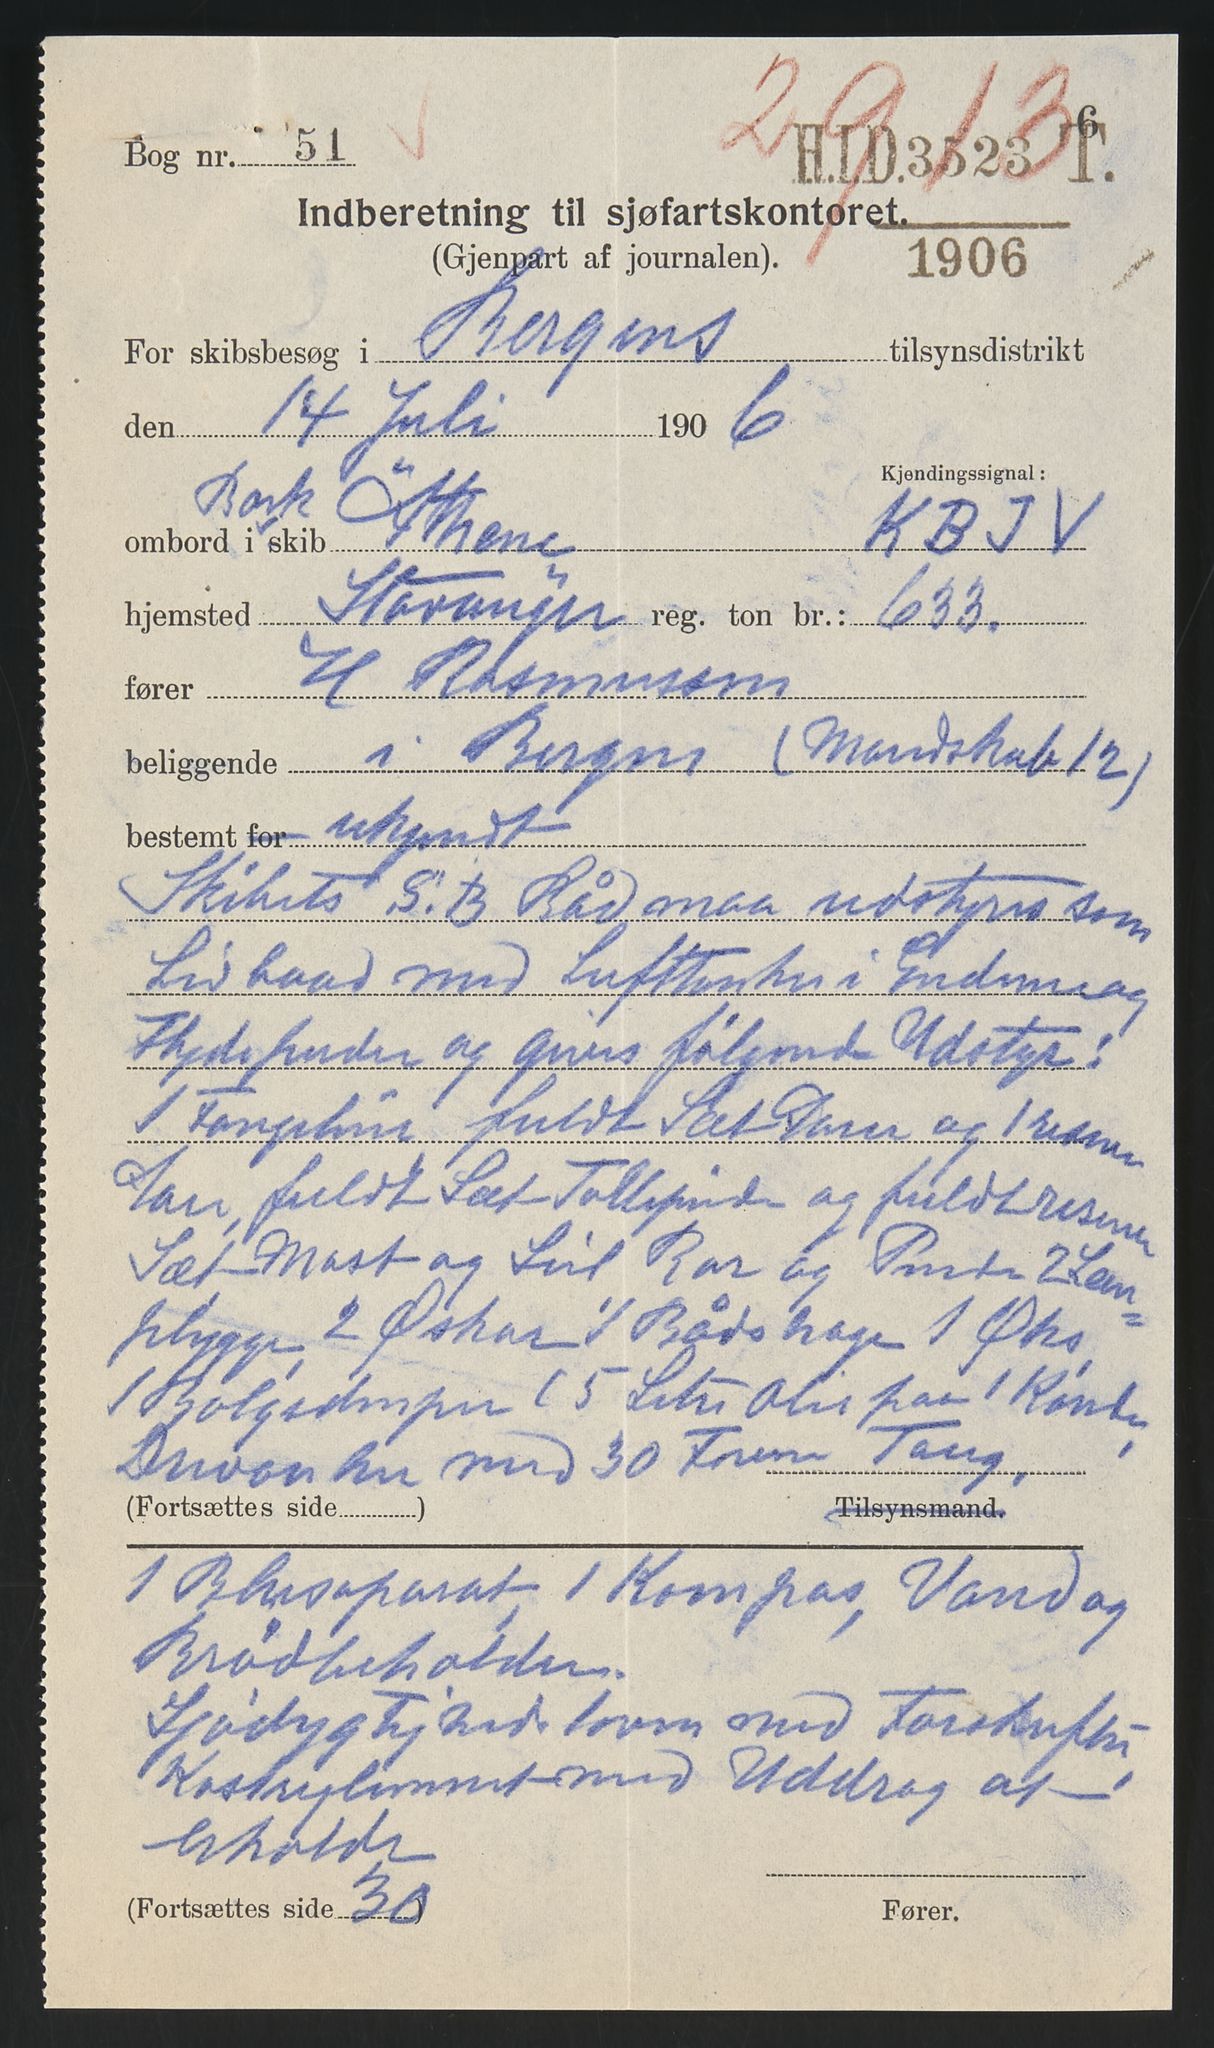 2913
6
Bog nr. 51
H.I.D. 3523 T.
Indberetning til sjøfartskontoret.
1906
(Gjenpart af journalen).
For skibsbesøg i Bergens tilsynsdistrikt
den 14 Juli 1906
Kjendingssignal:
Bark
ombord i skib Athene KBJV
hjemsted Stavanger reg. ton br.: 633.
fører H Rasmussen
beliggende i Bergen (Mandskab 12)
bestemt for ukjendt
Skibets S.B Båd maa udstyres som
Livbaad med Lufttanker i Enderne og
Flydepuder og gives følgende Udstyr:
1 Fangeline fuldt Sæt Aarer og 1 reserve
Aare, fuldt Sæt Tollepinde og fuldt reserve
Sæt Mast og Seil Ror og Pinde 2 Læn=
plugge, 2 Øskar 1 Bådshage 1 Øks,
1 Bølgedemper (5 Liter Olie paa 1 Kande,
Drivanker med 30 Favne Taug,
(Fortsættes side )
Tilsynsmand.
1 Blusapparat, 1 Kompas, Vand og
Brødbeholder.
Sjødygtighedsloven med Forskrifter,
Kostreglement med Uddrag at
erholde
(Fortsættes side 30)
Fører.